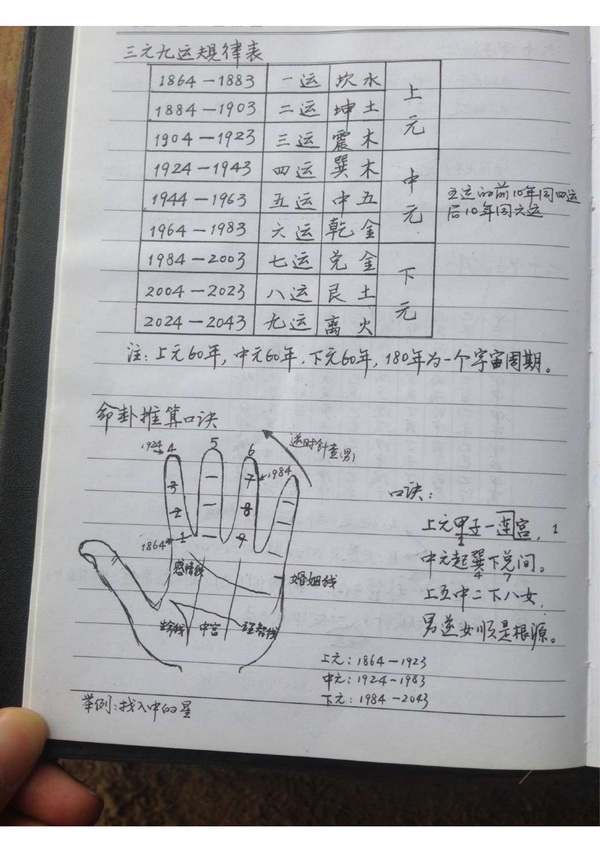 三元九运规律表
1864—1883 一运 坎水 上元
1884—1903 二运 坤土
1904—1923 三运 震木
1924—1943 四运 巽木 中元
1944—1963 五运 中五
1964—1983 六运 乾金
1984—2003 七运 兑金 下元
2004—2023 八运 艮土
2024—2043 九运 离火
五运的前10年同四运
后10年同六运
注:上元60年,中元60年,下元60年,180年为一个宇宙周期。
命卦推算口诀
逆时针查(男)
1924→ 4 5 6
3 7 ←1984
2 8
1864→ 1 9
感情线
婚姻线
中宫
口诀:
上元甲子一连宫, 1
中元起巽下兑间。
4 7
上五中二下八女,
男逆女顺是根源。
上元:1864—1923
中元:1924—1983
下元:1984—2043
举例:找入中的星